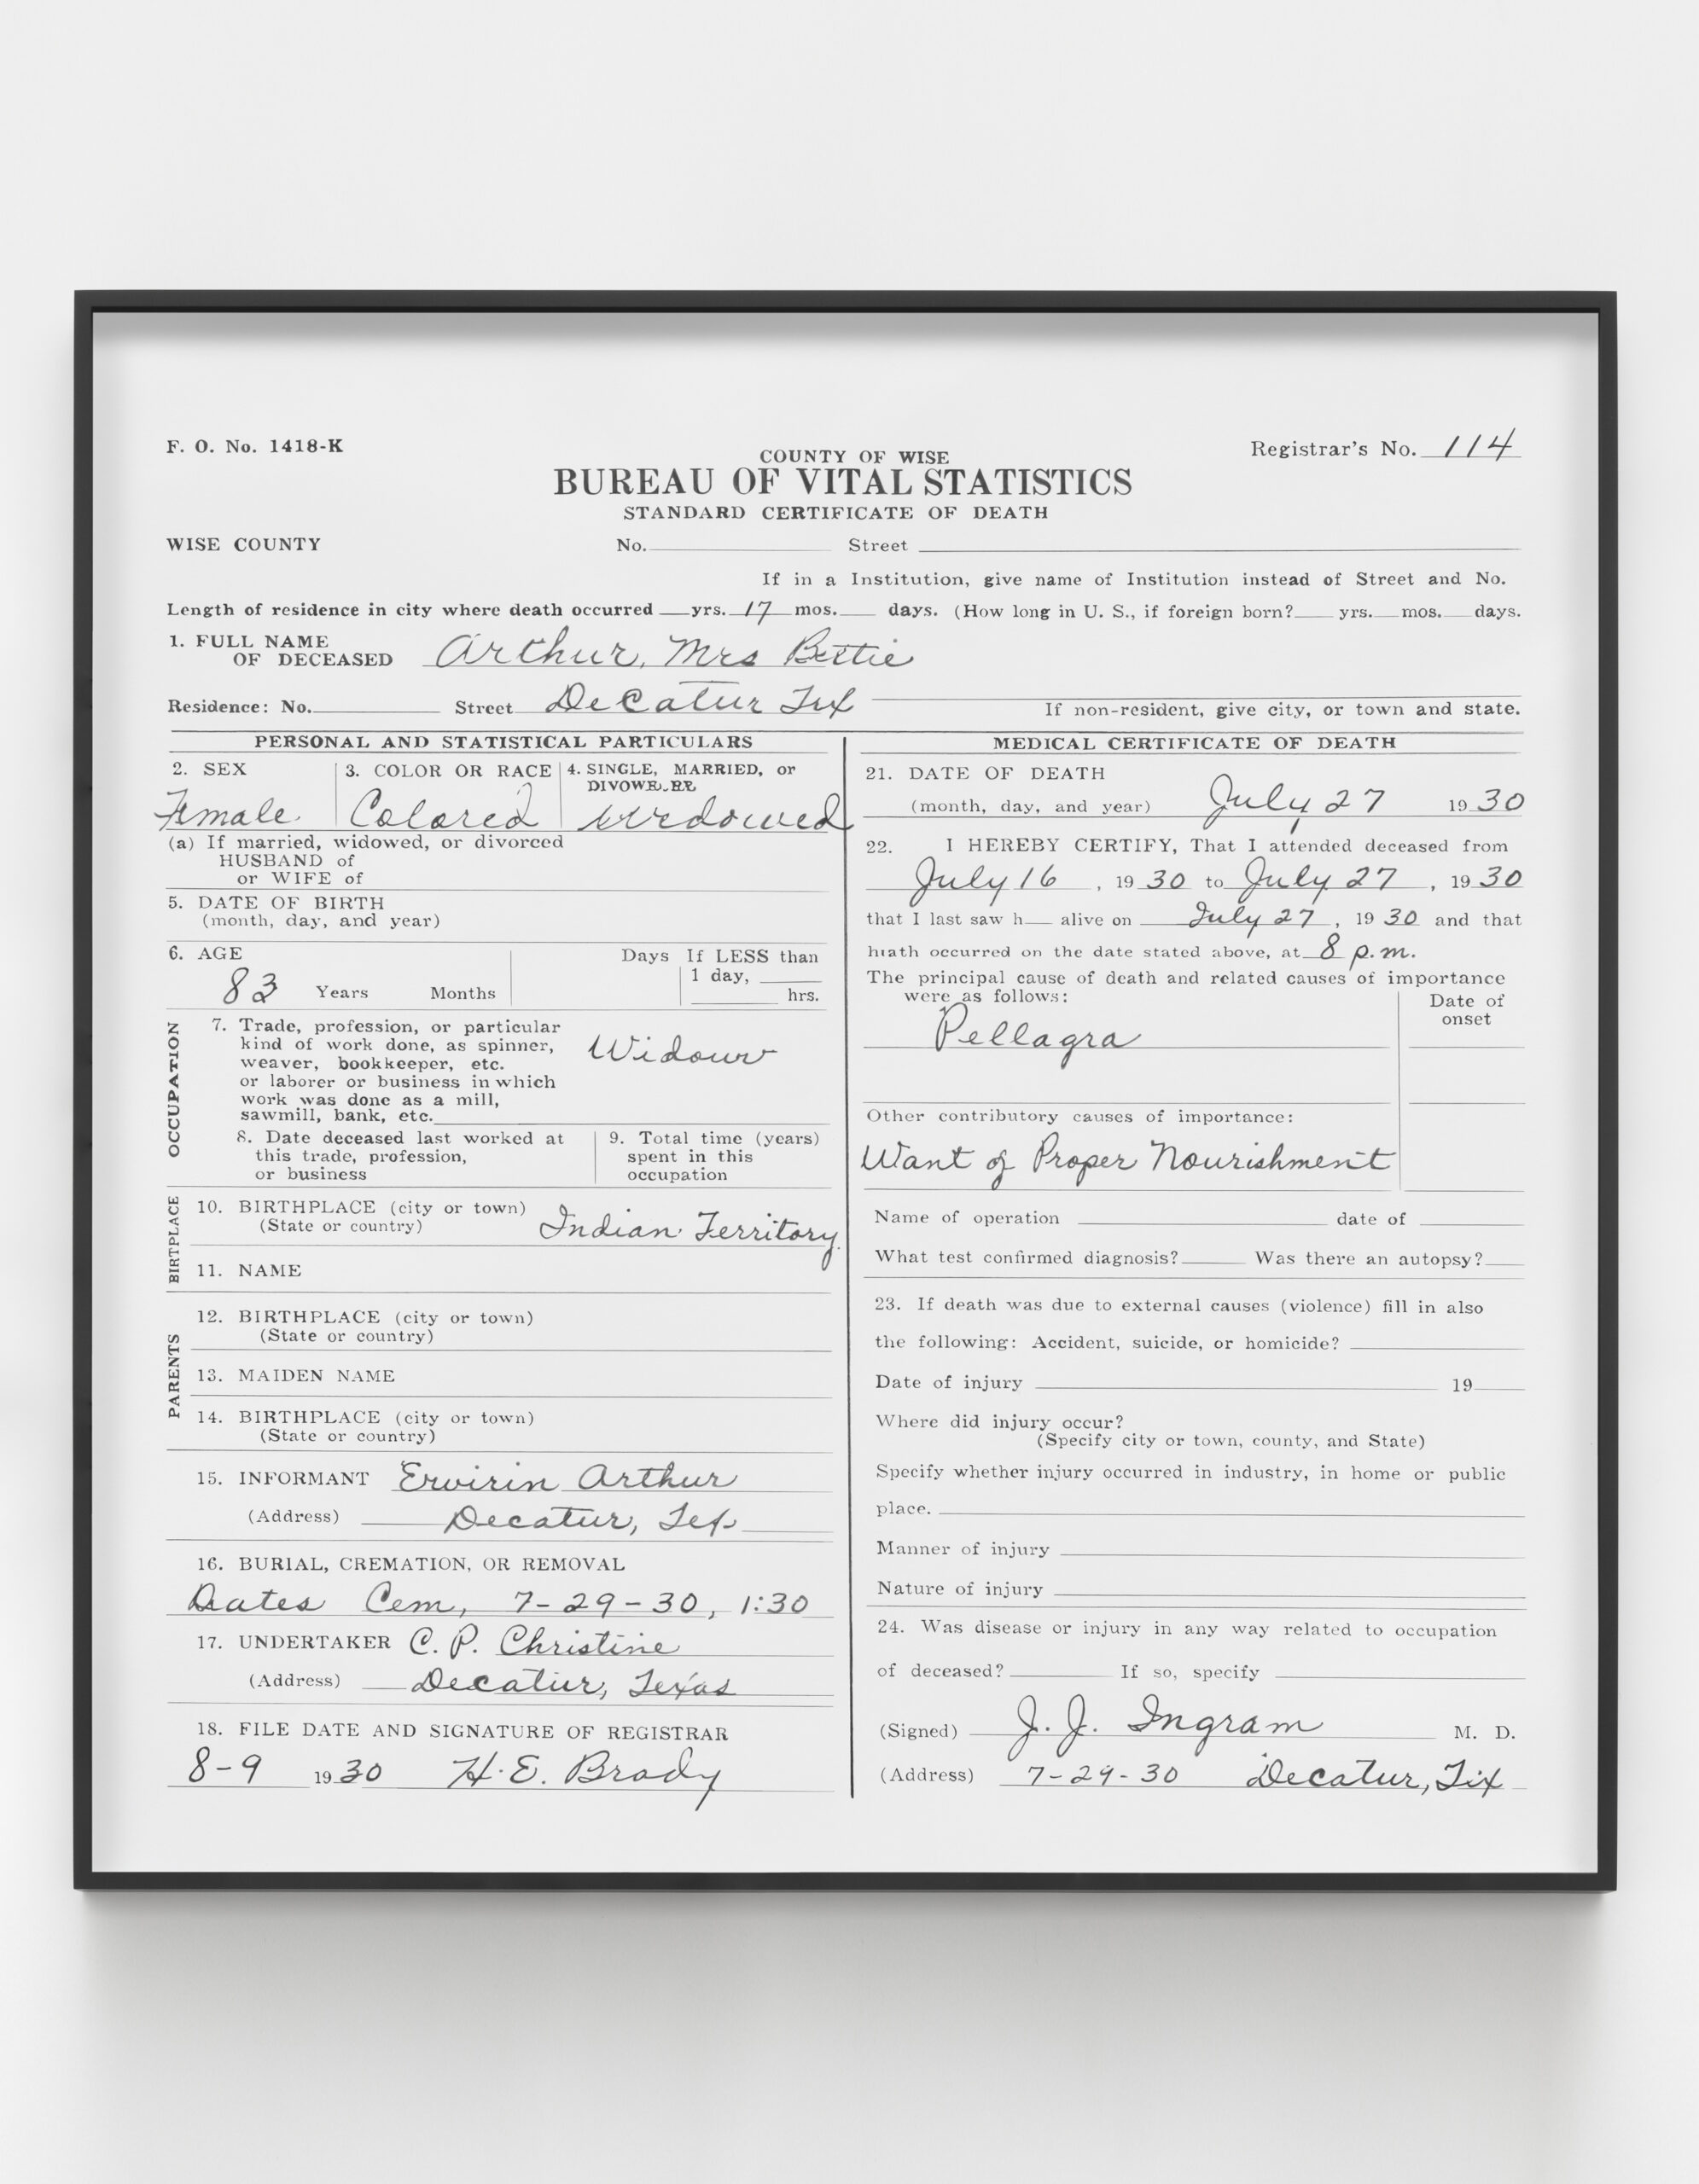 F. O. No. 1418-K
Registrar's No. 114
COUNTY OF WISE
BUREAU OF VITAL STATISTICS
STANDARD CERTIFICATE OF DEATH
WISE COUNTY No. Street
If in a Institution, give name of Institution instead of Street and No.
Length of residence in city where death occurred yrs. 17 mos. days. (How long in U. S., if foreign born? yrs. mos. days.
1. FULL NAME
OF DECEASED Arthur, Mrs Bettie
Residence: No. Street Decatur Tex
If non-resident, give city, or town and state.
PERSONAL AND STATISTICAL PARTICULARS
2. SEX
Female
3. COLOR OR RACE
Colored
4. SINGLE, MARRIED, or
DIVOWE.RE
Widowed
(a) If married, widowed, or divorced
HUSBAND of
or WIFE of
5. DATE OF BIRTH
(month, day, and year)
6. AGE
83 Years Months
Days If LESS than
1 day,
hrs.
OCCUPATION
7. Trade, profession, or particular
kind of work done, as spinner,
weaver, bookkeeper, etc.
or laborer or business in which
work was done as a mill,
sawmill, bank, etc.
Widow
8. Date deceased last worked at
this trade, profession,
or business
9. Total time (years)
spent in this
occupation
BIRTHPLACE
10. BIRTHPLACE (city or town)
(State or country) Indian Territory
11. NAME
PARENTS
12. BIRTHPLACE (city or town)
(State or country)
13. MAIDEN NAME
14. BIRTHPLACE (city or town)
(State or country)
15. INFORMANT Ervirin Arthur
(Address) Decatur, Tex
16. BURIAL, CREMATION, OR REMOVAL
Cem, 7-29-30, 1:30
17. UNDERTAKER C. P. Christine
(Address) Decatur, Texas
18. FILE DATE AND SIGNATURE OF REGISTRAR
8-9 1930 H. E. Brady
MEDICAL CERTIFICATE OF DEATH
21. DATE OF DEATH
(month, day, and year) July 27 1930
22. I HEREBY CERTIFY, That I attended deceased from
July 16, 1930 to July 27, 1930
that I last saw h alive on July 27, 1930 and that
hıath occurred on the date stated above, at 8 p.m.
The principal cause of death and related causes of importance
were as follows:
Date of
onset
Pellagra
Other contributory causes of importance:
Want of Proper Nourishment
Name of operation date of
What test confirmed diagnosis? Was there an autopsy?
23. If death was due to external causes (violence) fill in also
the following: Accident, suicide, or homicide?
Date of injury 19
Where did injury occur?
(Specify city or town, county, and State)
Specify whether injury occurred in industry, in home or public
place.
Manner of injury
Nature of injury
24. Was disease or injury in any way related to occupation
of deceased? If so, specify
(Signed) J. J. Ingram M. D.
(Address) 7-29-30 Decatur, Tex